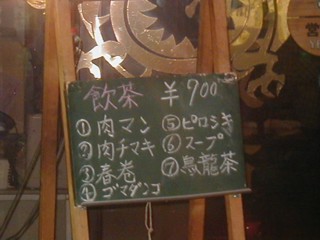 飲茶 ¥700
①肉マン
②肉チマキ
③春巻
④ゴマダンゴ
⑤ピロシキ
⑥スープ
⑦烏龍茶
営